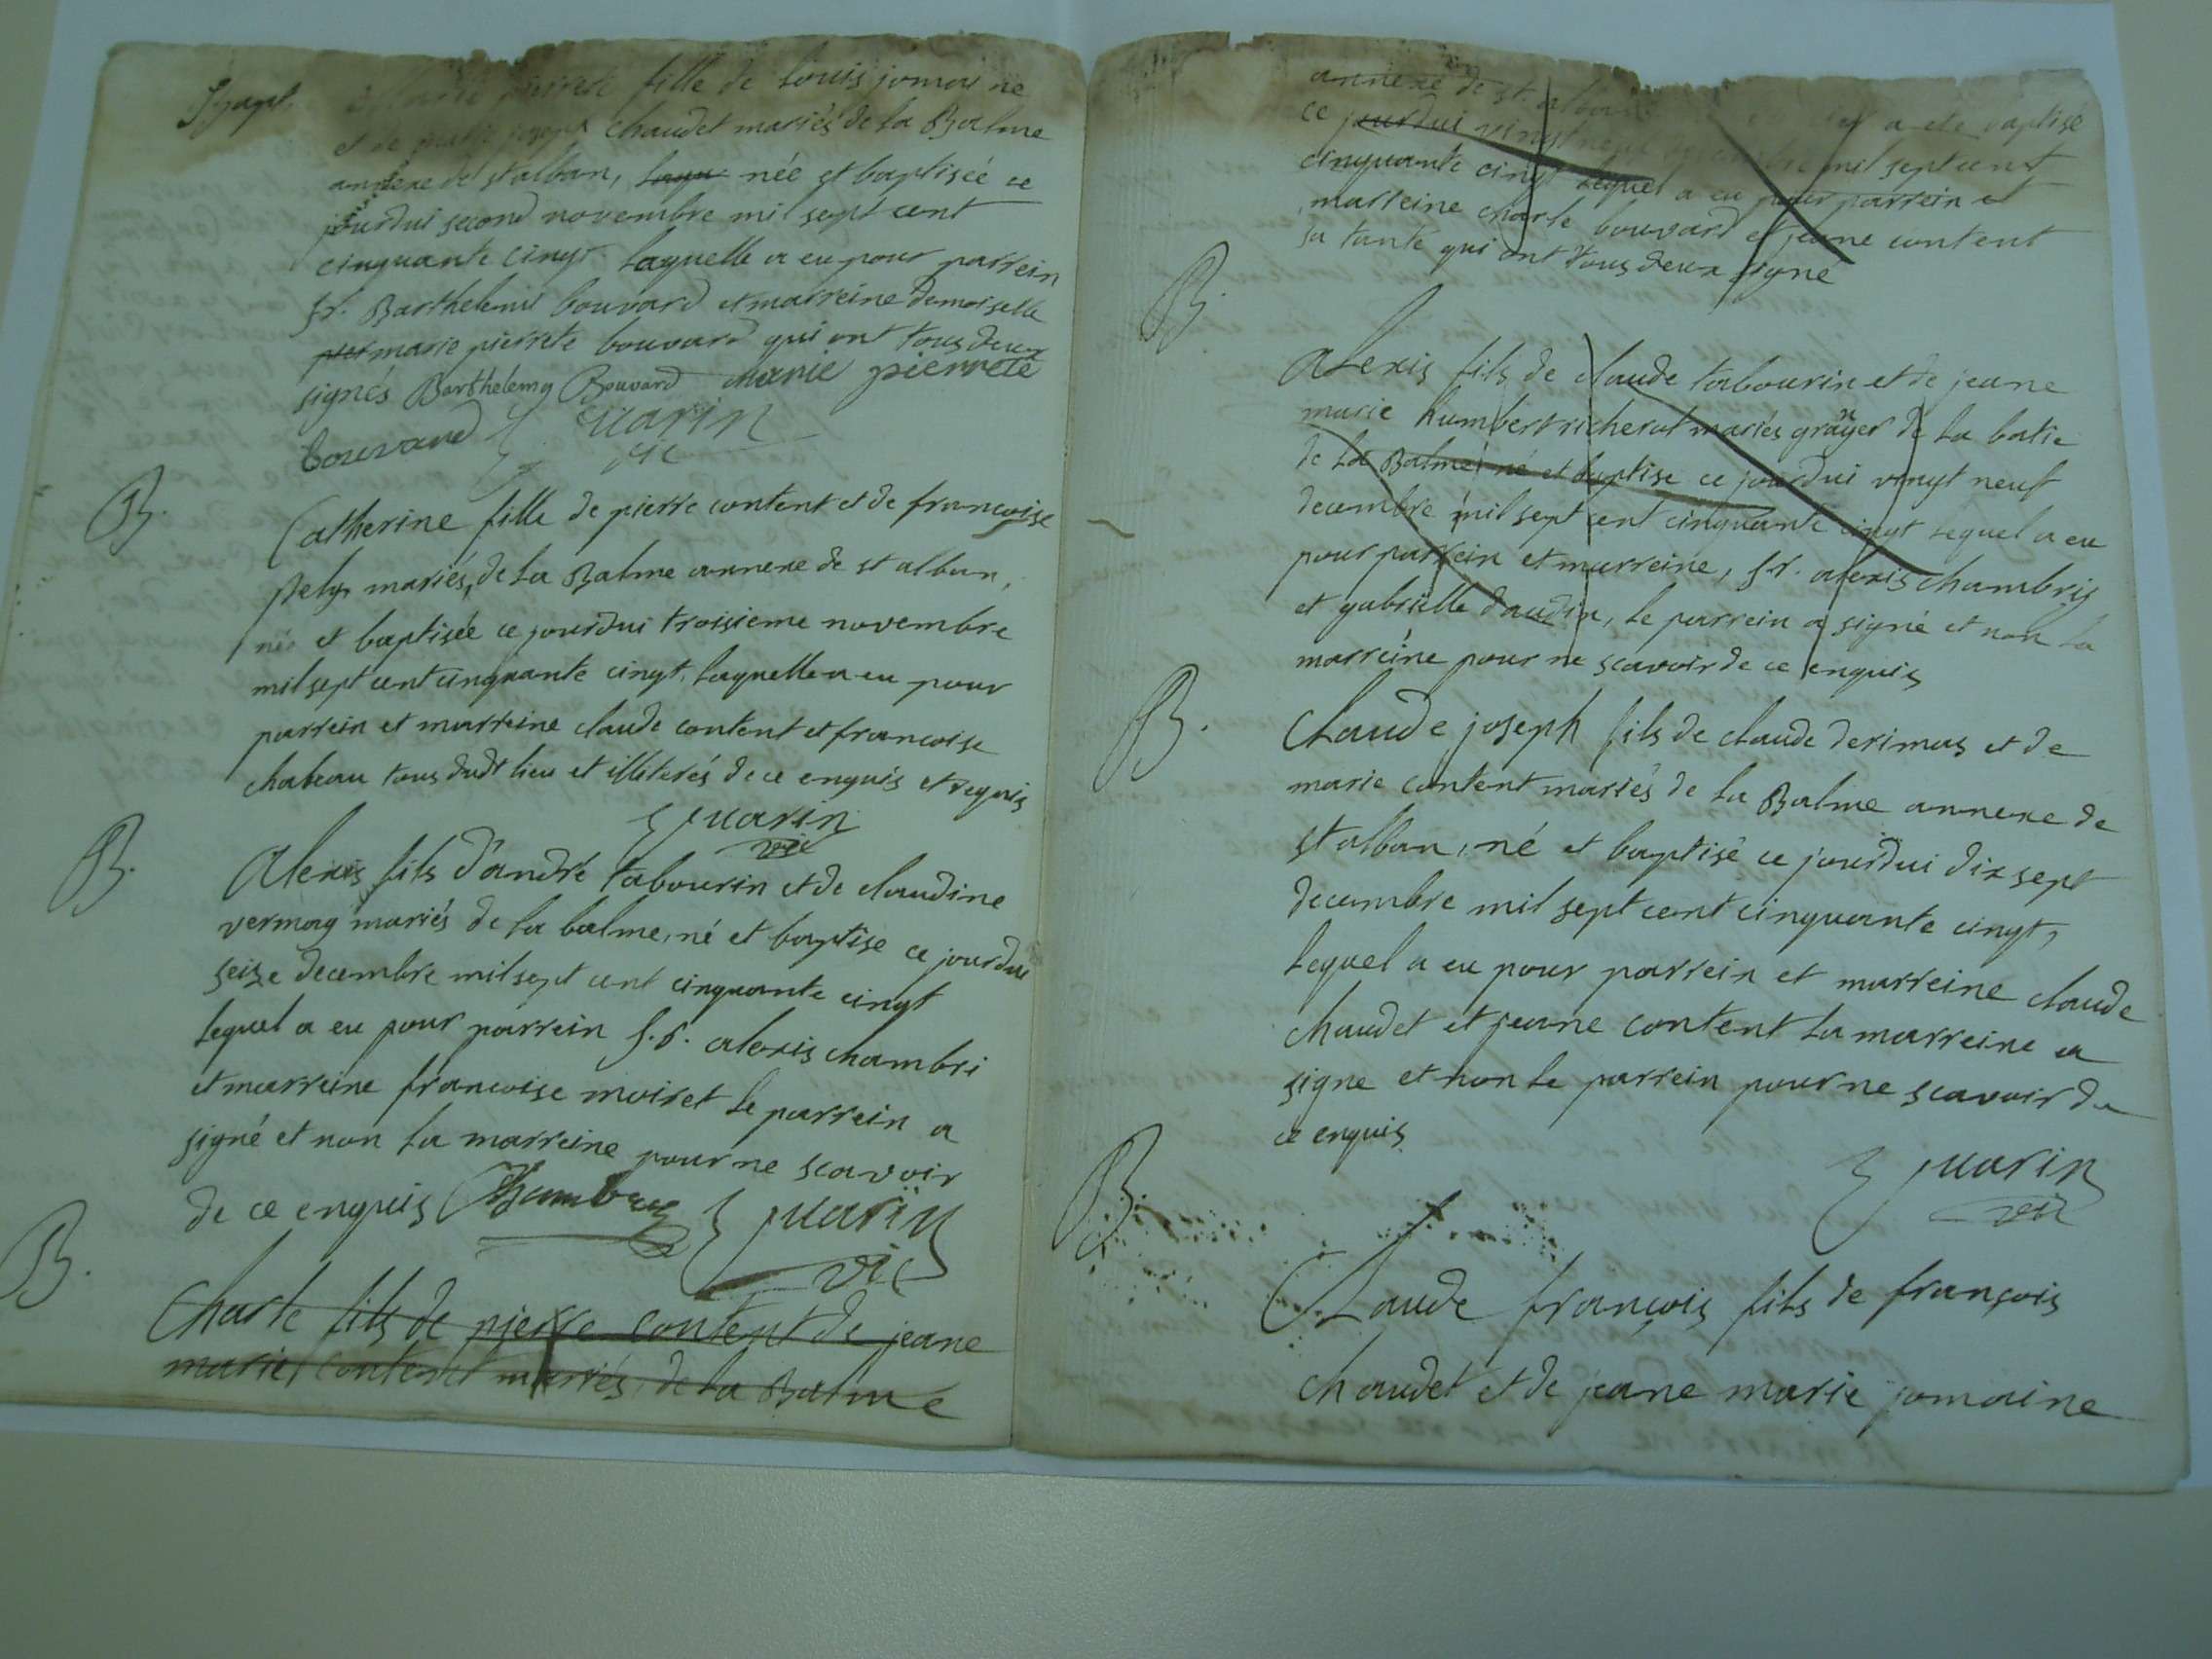 fille de Louis jomaine
et de marie joseph chaudet mariés de la Balme
annexe de st alban, laqu née et baptisée ce
jourdui second novembre mil sept cent
cinquante cinqt. laquelle a eu pour parrein
sr. Barthelemi bouvard et marreine demoiselle
pier marie pierrete bouvard qui ont tous deux
signés Barthelemy Bouvard marie pierrete
bouvard Marin
vic
B.
Catherine fille de pierre content et de francoise
mariés, de la Balme annexe de st alban,
née et baptisée ce jourdui troisieme novembre
mil sept cent cinquante cinqt, laquelle a eu pour
parrein et marreine claude content et francoise
chabeau tous dudt lieu et illiterés de ce enquis et requis
Marin
vic
B.
Alexis fils d'andré tabourin et de claudine
vermay mariés de la balme, né et baptise ce jourdui
seize decembre mil sept cent cinquante cinqt
lequel a eu pour parrein s.r. alexis chambri
et marreine francoise moiret le parrein a
signé et non la marreine pour ne scavoir
de ce enquis Marin
vic
B.
Charle fils de pierre content de jeane
marie content mariés, de la Balme
annexe de st. alban a ete baptisé
ce jourdui vingt neuf decembre mil sept cent
cinquante cinqt lequel a eu pour parrein et
marreine charle bouvard et jeane content
sa tante qui ont tous deux signé
B.
Alexis fils de claude tabourin et de jeane
marie humbert richerot mariés granger de la batie
de la Balme, né et baptise ce jourdui vingt neuf
decembre mil sept cent cinquante cinqt lequel a eu
pour parrein et marreine, s.r. alexis chambrij
et gabrielle daudin, le parrein a signé et non la
marreine pour ne scavoir de ce enquis
B.
Claude joseph fils de claude derimas et de
marie content mariés de la Balme annexe de
st alban, né et baptisé ce jourdui dix sept
decembre mil sept cent cinquante cinqt,
lequel a eu pour parrein et marreine claude
chaudet et jeane content la marreine a
signe et non le parrein pour ne scavoir de
ce enquis
Marin
vic
B.
Claude françois fils de françois
chaudet et de jeane marie jomaine